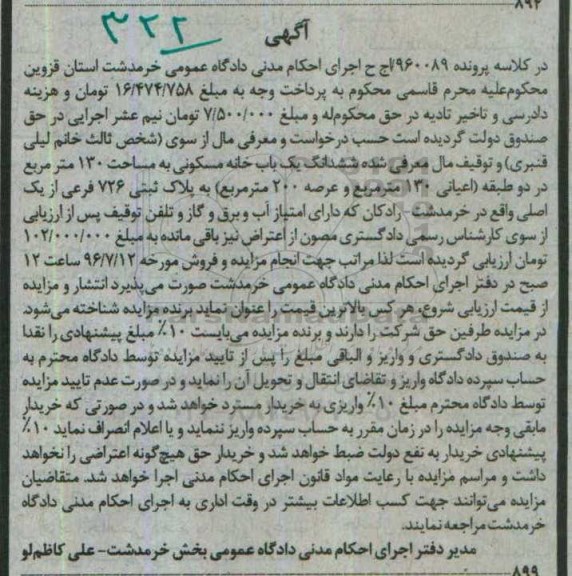 ۸۹۲
۳۲۲
آگهی
در کلاسه پرونده ۹۶۰۰۸۹/اج ح اجرای احکام مدنی دادگاه عمومی خرمدشت استان قزوین
محکوم‌علیه محرم قاسمی محکوم به پرداخت وجه به مبلغ ۱۶/۴۷۴/۷۵۸ تومان و هزینه
دادرسی و تاخیر تادیه در حق محکوم‌له و مبلغ ۷/۵۰۰/۰۰۰ تومان نیم عشر اجرایی در حق
صندوق دولت گردیده است حسب درخواست و معرفی مال از سوی (شخص ثالث خانم لیلی
قنبری) و توقیف مال معرفی شده ششدانگ یک باب خانه مسکونی به مساحت ۱۳۰ متر مربع
در دو طبقه (اعیانی ۱۳۰ مترمربع و عرصه ۲۰۰ مترمربع) به پلاک ثبتی ۷۲۶ فرعی از یک
اصلی واقع در خرمدشت- رادکان که دارای امتیاز آب و برق و گاز و تلفن توقیف پس از ارزیابی
از سوی کارشناس رسمی دادگستری مصون از اعتراض نیز باقی مانده به مبلغ ۱۰۲/۰۰۰/۰۰۰
تومان ارزیابی گردیده است لذا مراتب جهت انجام مزایده و فروش مورخه ۹۶/۷/۱۲ ساعت ۱۲
صبح در دفتر اجرای احکام مدنی دادگاه عمومی خرمدشت صورت می‌پذیرد انتشار و مزایده
از قیمت ارزیابی شروع، هر کس بالاترین قیمت را عنوان نماید برنده مزایده شناخته می‌شود.
در مزایده طرفین حق شرکت را دارند و برنده مزایده می‌بایست ۱۰٪ مبلغ پیشنهادی را نقدا
به صندوق دادگستری و واریز و الباقی مبلغ را پس از تایید مزایده توسط دادگاه محترم به
حساب سپرده دادگاه واریز و تقاضای انتقال و تحویل آن را نماید و در صورت عدم تایید مزایده
توسط دادگاه محترم مبلغ ۱۰٪ واریزی به خریدار مسترد خواهد شد و در صورتی که خریدار
مابقی وجه مزایده را در زمان مقرر به حساب سپرده واریز ننماید و یا اعلام انصراف نماید ۱۰٪
پیشنهادی خریدار به نفع دولت ضبط خواهد شد و خریدار حق هیچ‌گونه اعتراضی را نخواهد
داشت و مراسم مزایده با رعایت مواد قانون اجرای احکام مدنی اجرا خواهد شد. متقاضیان
مزایده می‌توانند جهت کسب اطلاعات بیشتر در وقت اداری به اجرای احکام مدنی دادگاه
خرمدشت مراجعه نمایند.
مدیر دفتر اجرای احکام مدنی دادگاه عمومی بخش خرمدشت- علی کاظم‌لو
۸۹۹